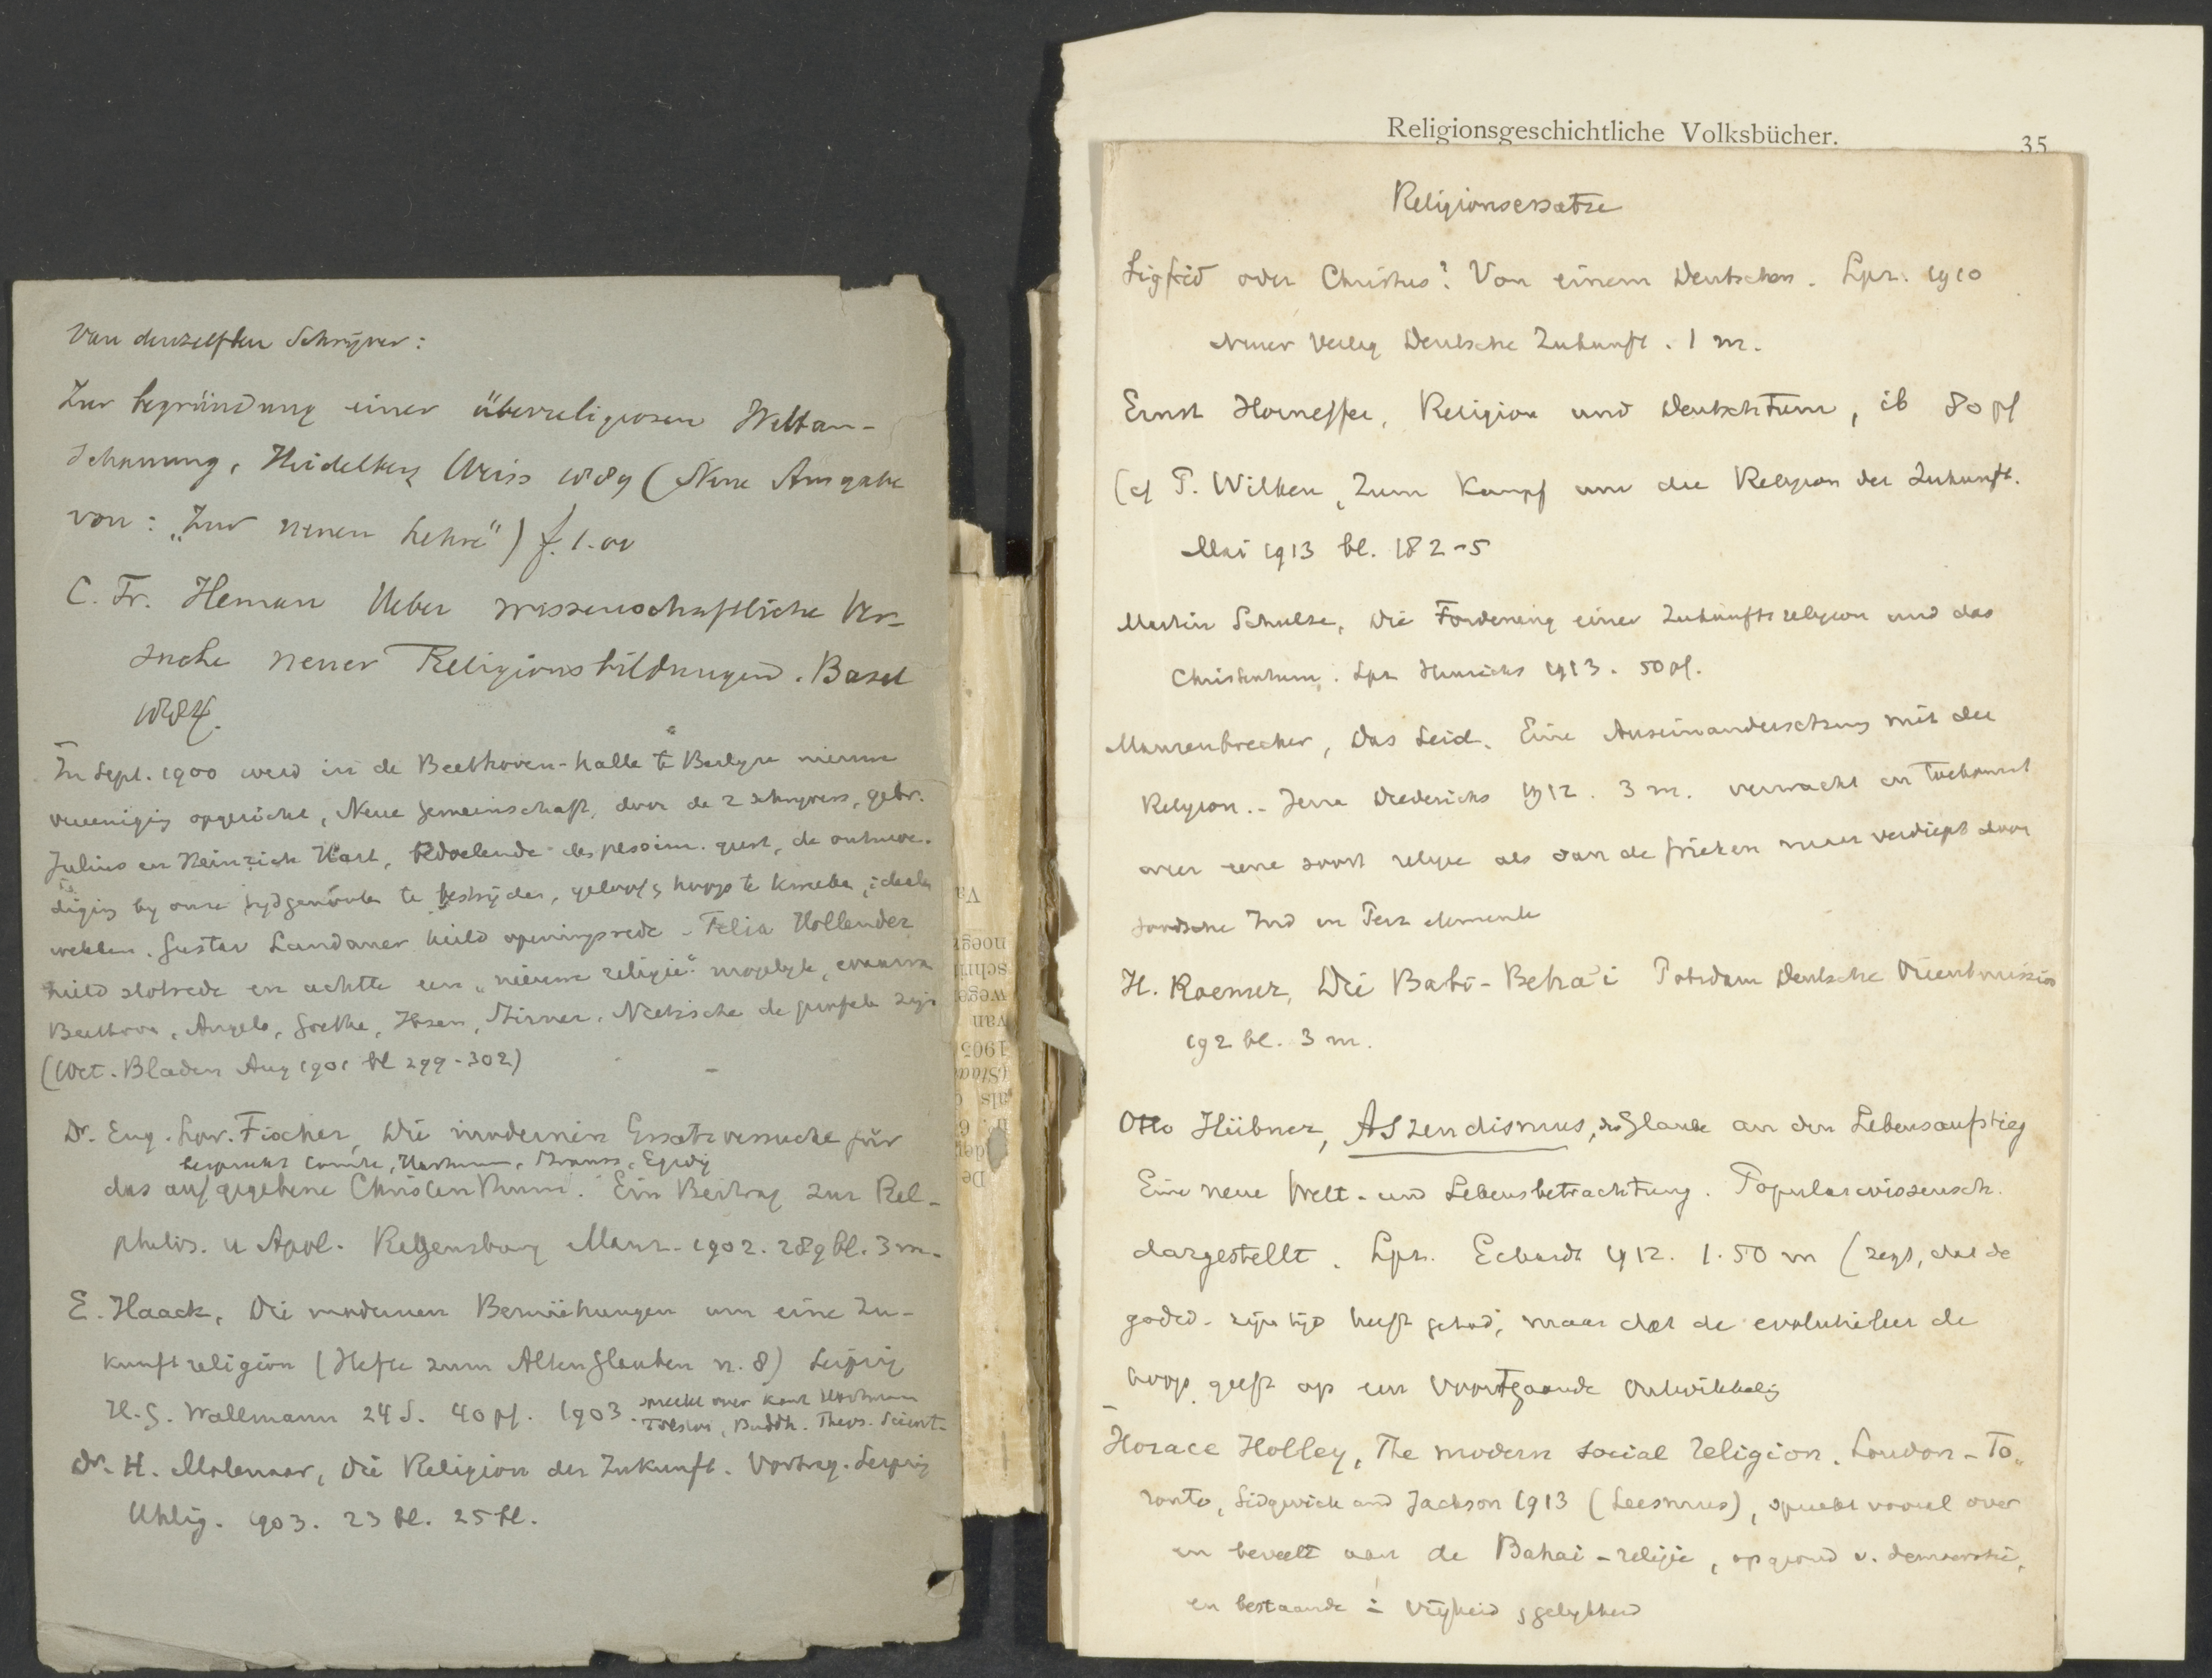 van denzelfden Schrijver:
Zur begründung einer überreligiosen Weltan-
schauung, Heidelberg Weiss 1889 (Neue Ausgabe
von: „Zur neuen Lehre") f. 1.00
C. Fr. Heman Ueber wissenschaftliche Ver-
suche neuer Religionsbildungen. Basel
1884.
In Sept. 1900 werd in de Beethoven-halle te Berlijn nieuwe
vereeniging opgericht, Neue Gemeinschaft, door de 2 schrijvers, gebr.
Julius en Heinrich Hart, bedoelende de pessim. geest, de
by onze tydgenooten te bestrijden, geloof & hoop te kweeken, idealen
wekken. Gustav Landauer hield openingsrede - Felix Hollender
hield slotrede en achtte een „nieuwe religie" mogelyk, waarvan
Beethoven, Angelo, Goethe, Ibsen, Stirner, Nietzsche de profeten zijn
(Wet. Bladen Aug 1901 bl 299-302)
Dr. Eug. Lor. Fischer, Die modernen Ersatzversuche für
bespreekt Comte, Hartmann, Strauss, Egidy
das aufgegebene Christenthum. Ein Beitrag zur Rel-
philos. u Apol. Regensburg Manz. 1902. 289 bl. 3 m.
E. Haack, Die modernen Bemühungen um eine Zu-
kunftsreligion (Hefte zum Alten Glauben n. 8) Leipzig
H.G. Wallmann 24 S. 40 pf. 1903. spreekt over Kant Hartmann
Tolstoi, Buddh. Theos. Scient.
Dr. H. Molenaar, Die Religion der Zukunft. Vortrag. Leipzig
Uhlig. 1903. 23 bl. 25 pf.
Religionsgeschichtliche Volksbücher. 35
Religionsersatze
Sigfrid oder Christus? Von einem Deutschen. Lpz. 1910
Neuer Verlag Deutsche Zukunft. 1 m.
Ernst Horneffer, Religion und Deutschtum, ib 80 pf
(cf T. Wilken, Zum Kampf um die Religion der Zukunft.
Mai 1913 bl. 182-5
Martin Schulze, Die Forderung einer Zukunftsreligion und das
Christentum. Lpz Hinrichs 1913. 50 pf.
Maurenbrecher, Das Leid. Eine Auseinandersetzung mit der
Religion. - Jena Diederichs 1912. 3 m. verwacht en toekomst
weer eene soort religie als van de Grieken maar verdiept door
Joodsche Ind en Perz elementen
H. Roemer, Die Babi-Beha'i Potsdam Deutsche Orientmission
192 bl. 3 m.
Otto Hübner, Aszendismus, der Glaube an den Lebensaufstieg
Eine neue Welt- und Lebensbetrachtung. Popularwissensch.
dargestellt. Lpz. Eckardt 1912. 1.50 m (zegt, dat de
godsd. zijn tijd heeft gehad, maar dat de evolutieleer de
hoop geeft op een voortgaande ontwikkeling
Horace Holley, The modern social religion. London - To„
ronto, Sidgwick and Jackson 1913 (Leesmus), spreekt vooral over
en beveelt aan de Bahai-religie, op grond v. democratie,
en bestaande in vrijheid & gelykheid